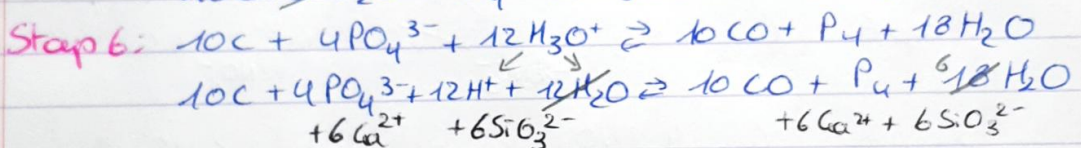 Stap 6: 10C + 4PO₄³⁻ + 12H₃O⁺ ⇄ 10CO + P₄ + 18H₂O
10C + 4PO₄³⁻ + 12H⁺ + 12H₂O ⇄ 10CO + P₄ + ⁶18H₂O
+6Ca²⁺ +6SiO₃²⁻ +6Ca²⁺ + 6SiO₃²⁻